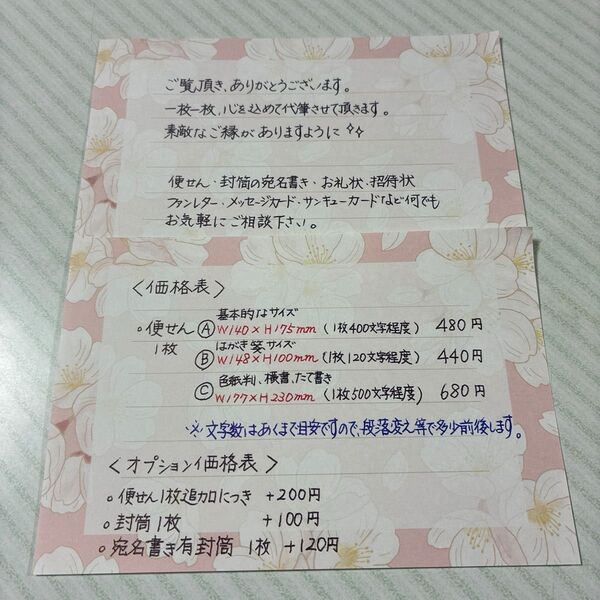 ご覧頂き、ありがとうございます。
一枚一枚、心を込めて代筆させて頂きます。
素敵なご縁がありますように✧✧
便せん・封筒の宛名書き・お礼状・招待状
ファンレター・メッセージカード・サンキューカードなど何でも
お気軽にご相談下さい。
〈価格表〉
基本的なサイズ
○便せん Ⓐ W140×H175mm (1枚400文字程度) 480円
はがき箋サイズ
1枚 Ⓑ W148×H100mm (1枚120文字程度) 440円
色紙判、横書、たて書き
Ⓒ W177×H230mm (1枚500文字程度) 680円
※文字数はあくまで目安ですので、段落変え等で多少前後します。
〈オプション価格表〉
○便せん1枚追加につき +200円
○封筒1枚 +100円
○宛名書き有封筒 1枚 +120円